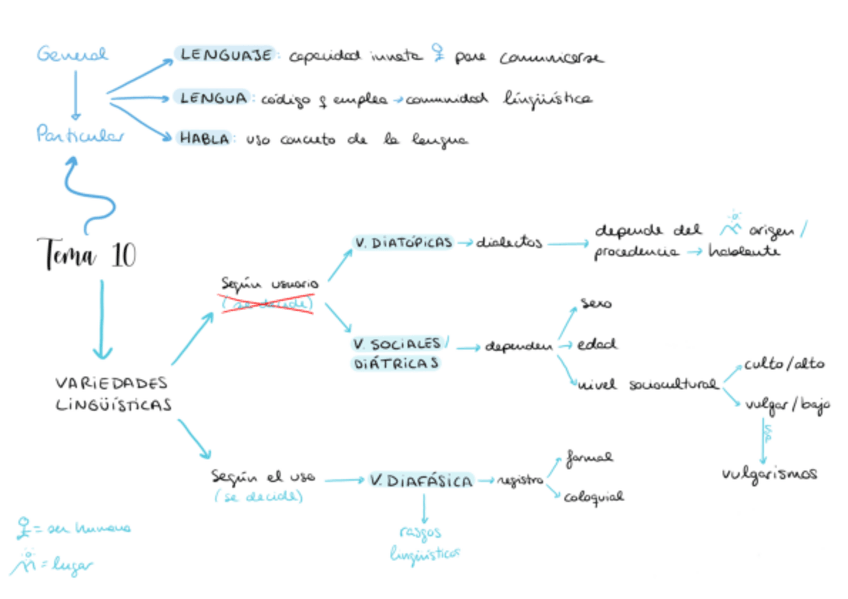 General
LENGUAJE: capacidad innata para comunicarse
LENGUA: código q emplea → comunidad lingüística
Particular
HABLA: uso concreto de la lengua
Tema 10
V. DIATÓPICAS → dialectos → depende del origen/
procedencia → hablante
Según usuario
(se decide)
sexo
V. SOCIALES/
DIÁTRICAS → dependen → edad
nivel sociocultural
culto/alto
vulgar/bajo
VARIEDADES
LINGÜÍSTICAS
vulgarismos
Según el uso → V. DIAFÁSICA → registro
(se decide)
formal
coloquial
rasgos
lingüísticos
= ser humano
= lugar